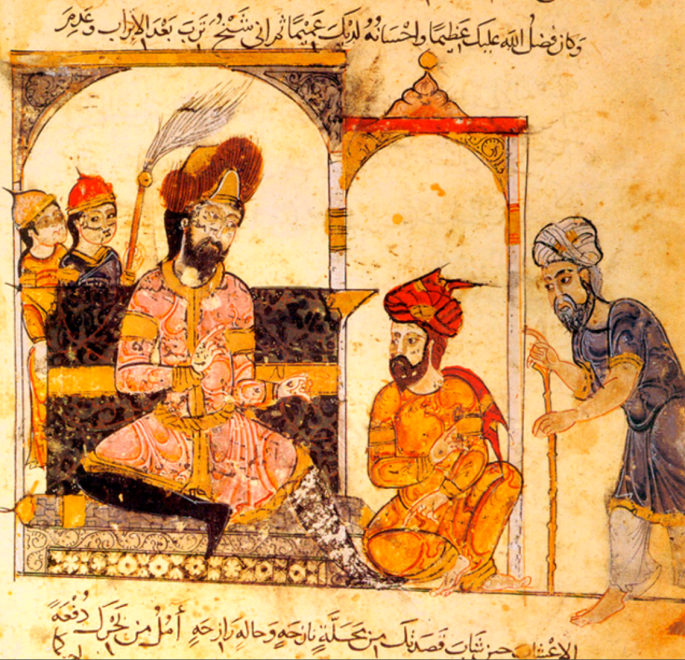 وكان فضل الله عليك عظيمًا واحسانه لديك عميمًا ثم اني شيخ ترب بعد الاتراب وعدم
الاعشاب حين شاب قصدتك من محلة نازحه وحاله رازحه أمل من بحرك دفعة